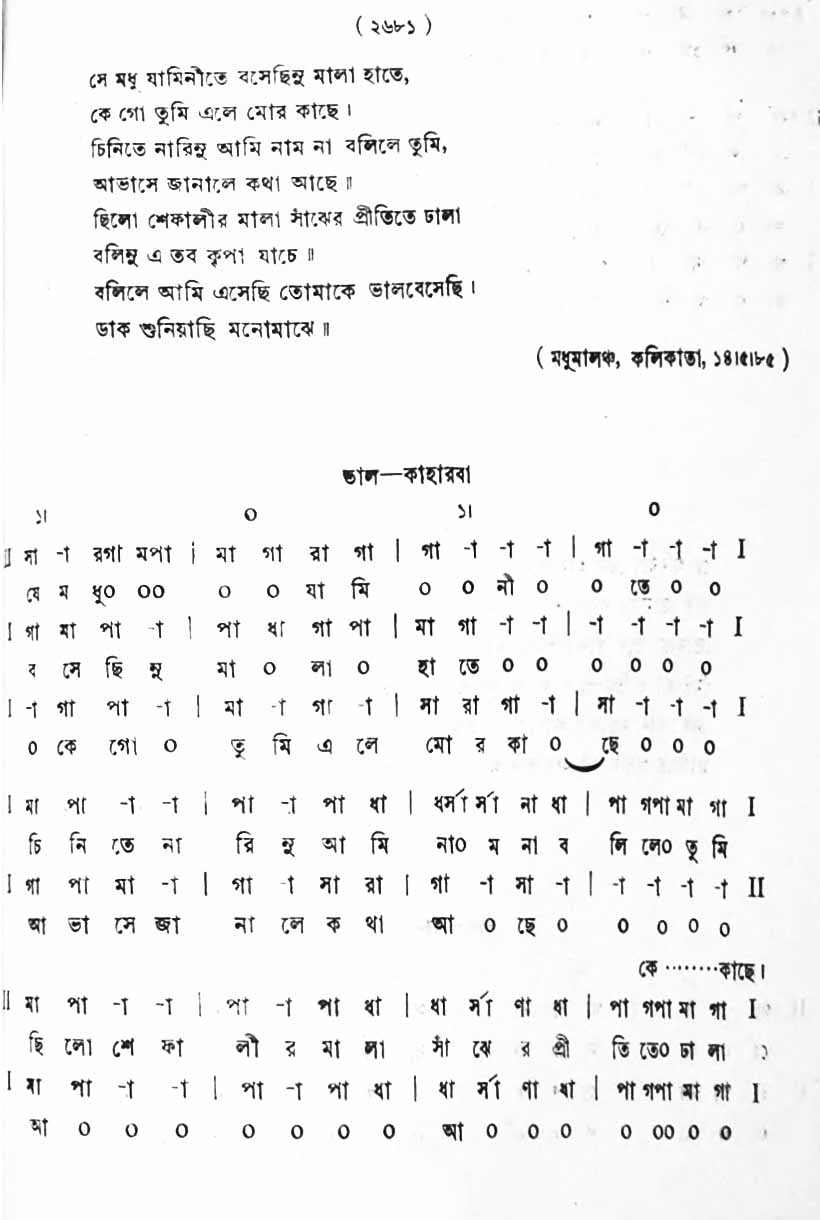 ( ২৬৮১ )
সে মধু যামিনীতে বসেছিনু মালা হাতে,
কে গো তুমি এলে মোর কাছে ।
চিনিতে নারিনু আমি নাম না বলিলে তুমি,
আভাসে জানালে কথা আছে ॥
ছিলো শেফালীর মালা সাঁঝের প্রীতিতে ঢালা
বলিনু এ তব কৃপা যাচে ॥
বলিলে আমি এসেছি তোমাকে ভালবেসেছি ।
ডাক শুনিয়াছি মনোমাঝে ॥
( মধুমালঞ্চ, কলিকাতা, ১৪।৫।৮৫ )
তাল—কাহারবা
১। 0 ১। 0
II সা -া রগা মপা | মা গা রা গা | গা -া -া -া | গা -া -া -া I
যে ম ধু0 00 0 0 যা মি 0 0 নী 0 0 তে 0 0
I গা মা পা -া | পা ধা গা পা | মা গা -া -া | -া -া -া -া I
ব সে ছি নু মা 0 লা 0 হা তে 0 0 0 0 0 0
I -া গা পা -া | মা -া গা -া | সা রা গা -া | সা -া -া -া I
0 কে গো 0 তু মি এ লে মো র কা 0 ছে 0 0 0
I মা পা -া -া | পা -া পা ধা | ধর্সা র্সা না ধা | পা গপা মা গা I
চি নি তে না রি নু আ মি না0 ম না ব লি লে0 তু মি
I গা পা মা -া | গা -া সা রা | গা -া সা -া | -া -া -া -া II
আ ভা সে জা না লে ক থা আ 0 ছে 0 0 0 0 0
কে ········কাছে।
II মা পা -া -া | পা -া পা ধা | ধা র্সা ণা ধা | পা গপা মা গা I
ছি লো শে ফা লী র মা লা সাঁ ঝে র প্রী তি তে0 ঢা লা
I মা পা -া -া | পা -া পা ধা | ধা র্সা ণা ধা | পা গপা মা গা I
আ 0 0 0 0 0 0 0 আ 0 0 0 0 00 0 0